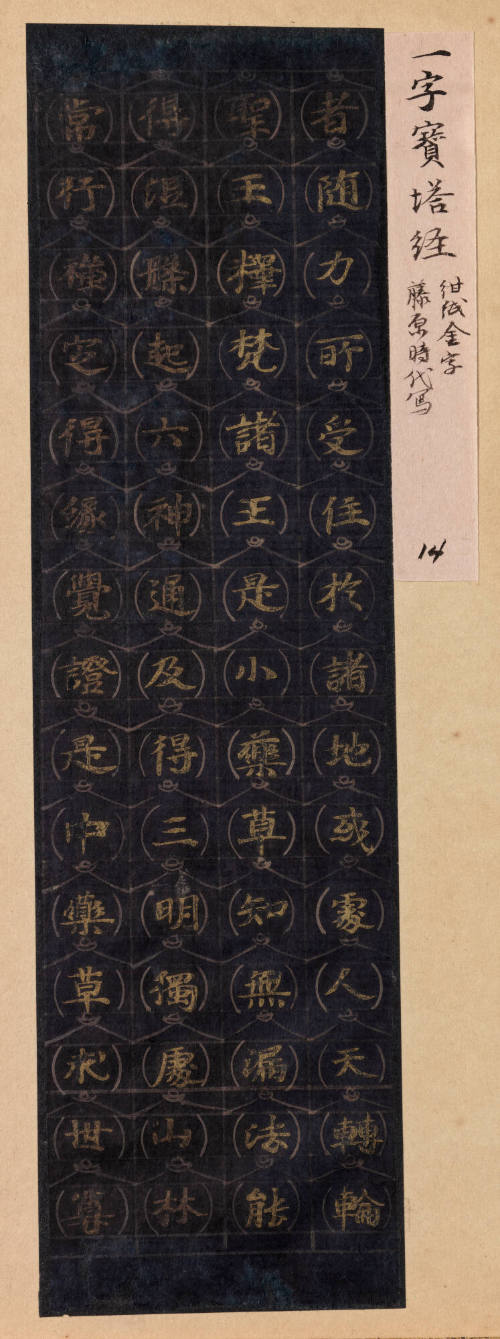 一字寶塔経
紺紙金字
藤原時代写
14
者随力所受住於諸地或處人天轉輪
聖王釋梵諸王是小藥草知無漏法能
得涅槃起六神通及得三明獨處山林
常行禪定得縁覺證是中藥草求世尊